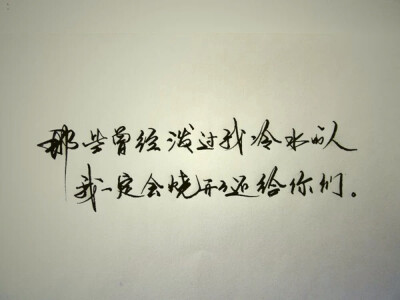 那些曾经泼过我冷水的人
我一定会烧开还给你们。